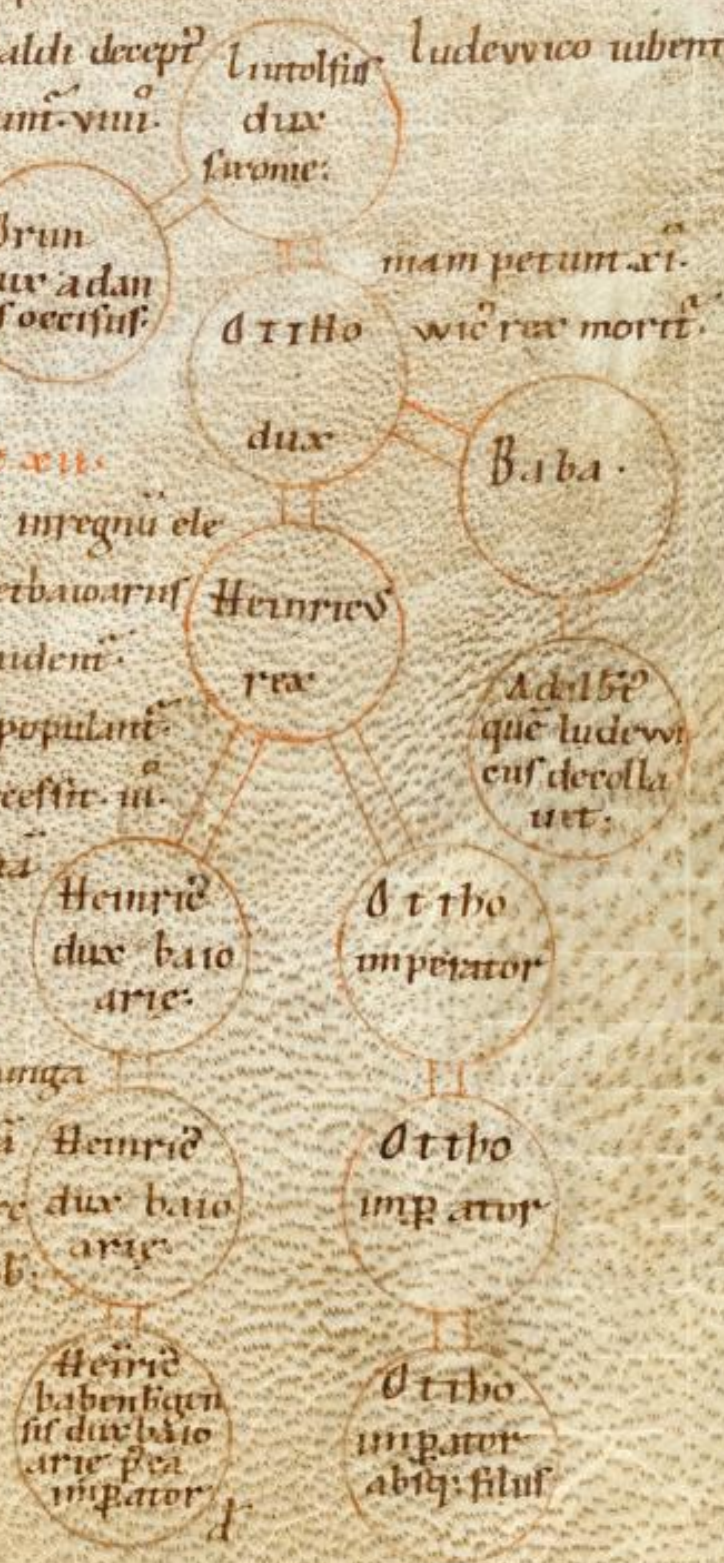 aldi decept᷒
Liutolfus
dux
saxonie:
Ludewico iubent
unt̃. viiii.
Brun
ux a dan
s occisus.
mam petunt. xi.
Ottho
dux
wic᷒ rex morit᷒.
Baba.
xii.
in regnũ ele
et bawariis
Heinricus
rex
populant᷒.
cessit. iii.
Adalb̃t᷒
quẽ ludewi
cus decolla
uit.
Heinric᷒
dux baio
arie:
Ottho
imperator
unga
Heinric᷒
dux baio
arie:
Ottho
imꝑator
Heinric᷒
babenbgen
sis dux baio
arie p̃ea
imꝑator
Ottho
imꝑator
absq: filiis